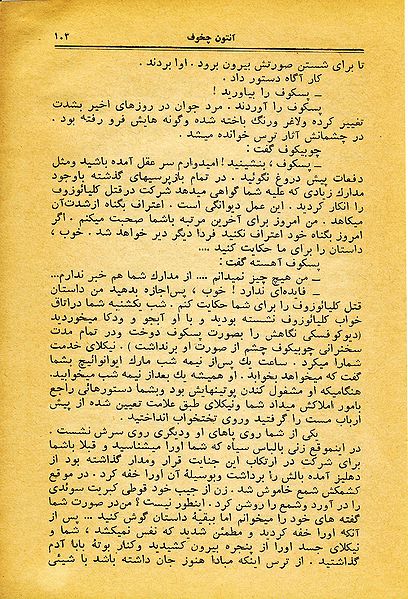 آنتون چخوف
۱۰۲
تا برای شستن صورتش بیرون برود . اوا بردند .
کار آگاه دستور داد .
ــ پسکوف را بیاورید !
پسکوف را آوردند . مرد جوان در روزهای اخیر بشدت
تغییر کرده ولاغر ورنگ باخته شده وگونه هایش فرو رفته بود .
در چشمانش آثار ترس خوانده میشد .
چوبیکوف گفت :
ــ پسکوف ، بنشینید ! امیدوارم سر عقل آمده باشید ومثل
دفعات پیش دروغ نگوئید . در تمام بازپرسیهای گذشته باوجود
مدارك زیادی که علیه شما گواهی میدهد شرکت درقتل کلیائوزوف
را انکار کردید . این عمل دیوانگی است . اعتراف بگناه ازشدت‌آن
میکاهد . من امروز برای آخرین مرتبه باشما صحبت میکنم . اگر
امروز بگناه خود اعتراف نکنید فردا دیگر دیر خواهد شد . خوب ،
داستان را برای ما حکایت کنید ....
پسکوف آهسته گفت :
ــ من هیچ چیز نمیدانم .... از مدارك شما هم خبر ندارم...
ــ فایده‌ای ندارد ! خوب ، پس‌اجازه بدهید من داستان
قتل کلیائوزوف را برای شما حکایت کنم . شب یکشنبه شما دراتاق
خواب کلیائوزوف نشسته بودید و با او آبجو و ودکا میخوردید
(دیوکوفسکی نگاهش را بصورت پسکوف دوخت ودر تمام مدت
سخنرانی چوبیکوف چشم از صورت او برنداشت ) . نیکلای خدمت
شمارا میکرد . ساعت یك پس‌از نیمه شب مارك ایوانوانیچ بشما
گفت که میخواهد بخوابد . او همیشه یك بعداز نیمه شب میخوابید.
هنگامیکه او مشغول کندن پوتینهایش بود وبشما دستورهائی راجع
بامور املاکش میداد شما ونیکلای طبق علامت تعیین شده از پیش
ارباب مست را گرفتید وروی تختخواب انداختید .
یکی از شما روی پاهای او ودیگری روی سرش نشست .
در اینموقع زنی بالباس سیاه که شما اورا میشناسید و قبلا باشما
برای شرکت در ارتکاب این جنایت قرار ومدار گذاشته بود از
دهلیز آمده بالش را برداشت وبوسیلهٔ آن اورا خفه کرد . در موقع
کشمکش شمع خاموش شد . زن از جیب خود قوطی کبریت سوئدی
را در آورد وشمع را روشن کرد . اینطور نیست ؟ من‌در صورت شما
گفته های خود را میخوانم اما بقیهٔ داستان گوش کنید ... پس از
آنکه اورا خفه کردید و مطمئن شدید که نفس نمیکشد ، شما و
نیکلای جسد اورا از پنجره بیرون کشیدید وکنار بوتهٔ بابا آدم
گذاشتید . از ترس اینکه مبادا هنوز جان داشته باشد با شیئی